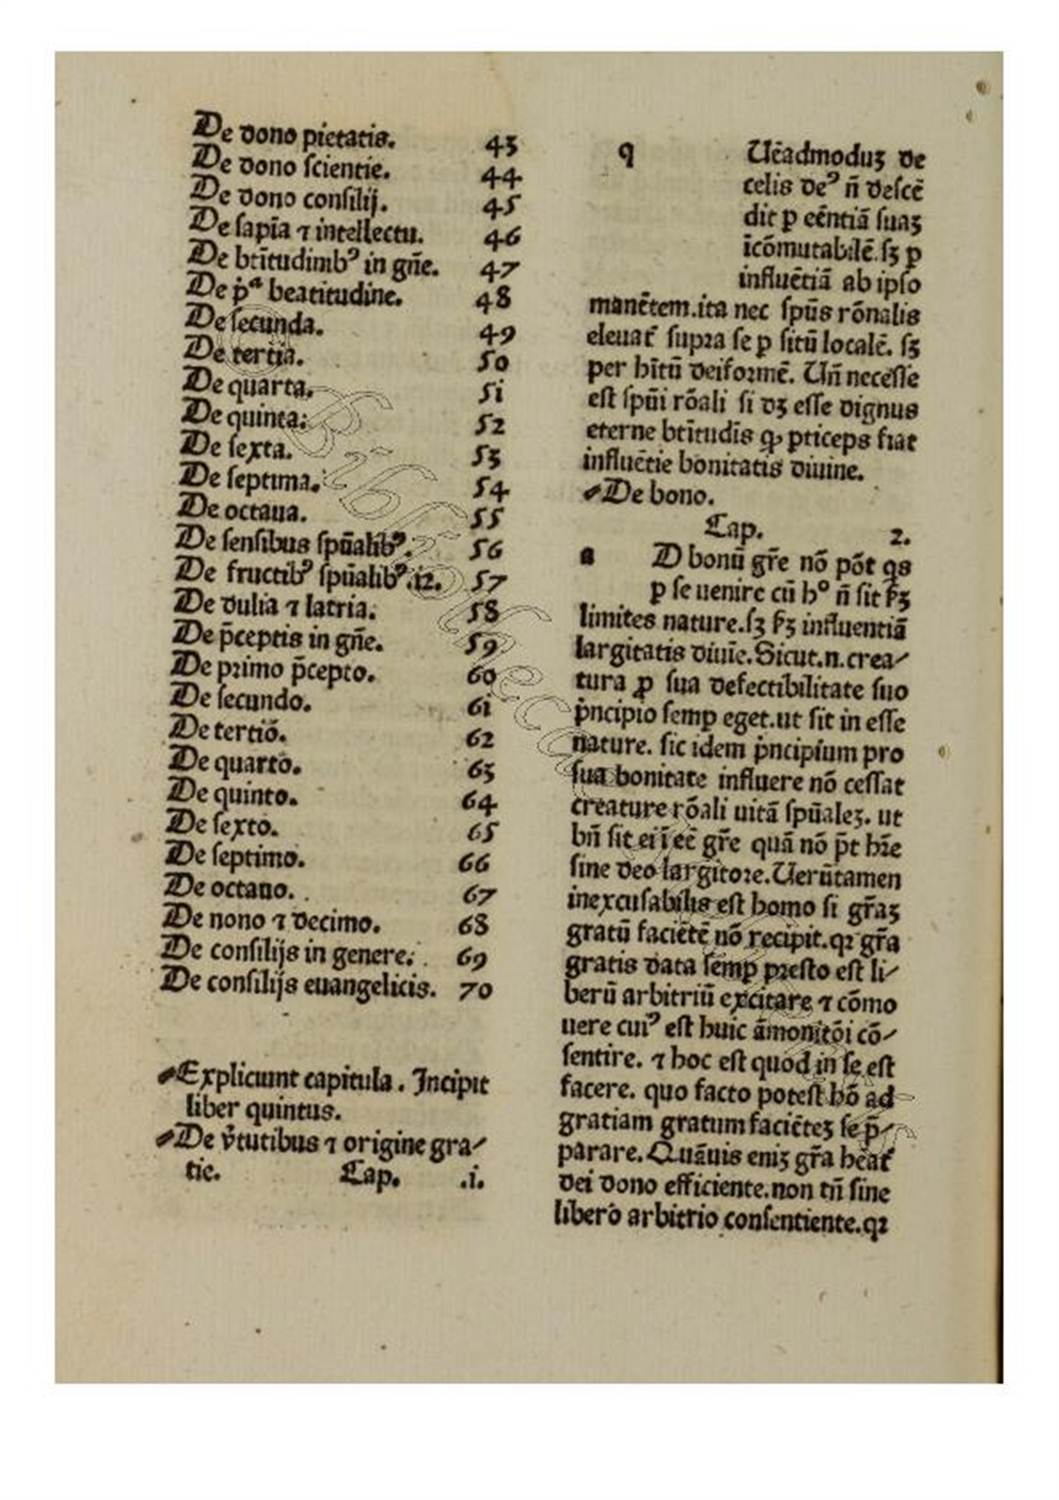 De dono pietatis. 43
De dono scientie. 44
De dono consilij. 45
De sapīa ⁊ intellectu. 46
De btītudinibꝰ in gn̄e. 47
De pͥª beatitudine. 48
De secunda. 49
De tertia. 50
De quarta. 51
De quinta. 52
De sexta. 53
De septima. 54
De octaua. 55
De sensibus spūalibꝰ. 56
De fructibꝰ spūalibꝰ.12. 57
De dulia ⁊ latria. 58
De p̄ceptis in gn̄e. 59
De primo p̄cepto. 60
De secundo. 61
De tertio. 62
De quarto. 63
De quinto. 64
De sexto. 65
De septimo. 66
De octauo. 67
De nono ⁊ decimo. 68
De consilijs in genere. 69
De consilijs euangelicis. 70
Expliciunt capitula . Incipit
liber quintus.
De v̄tutibus ⁊ origine gra/
tie. Cap. .i.
q Uēadmoduꝫ de
celis deꝰ n̄ descē
dit p eēntiā suaꝫ
īcōmutabilē.sꝫ p
influētiā ab ipso
manētem.ita nec spūs rōnalis
eleuat᷑ supra se p sitū localē. sꝫ
per hītū deiformē. Un̄ necesse
est spūi rōali si dꝫ esse dignus
eterne btītudīs ꝙ pticeps fiat
influētie bonitatis diuine.
De bono.
Cap. 2.
a D bonū gr̄e nō pōt qs
p se uenire cū hᵒ n̄ sit ẜꝫ
limites nature.sꝫ ẜꝫ influentiā
largitatis diuīe.Sicut.n.crea/
tura ꝓ sua defectibilitate suo
pͥncipio semp eget.ut sit in esse
nature. sic idem pͥncipium pro
sua bonitate influere nō cessat
creature rōali uitā spūaleꝫ. ut
bn̄ sit ei ī eē gr̄e quā nō pōt hr̄e
sine deo largitore.Uerūtamen
inexcusabilis est homo si gr̄aꝫ
gratū faciētē nō recipit.qꝛ gr̄a
gratis data semp presto est li/
berū arbitriū excitare ⁊ cōmo
uere cuiꝰ est huic āmonitōi cō/
sentire. ⁊ hoc est quod in se est
facere. quo facto potest hō ad
gratiam gratum faciēteꝫ se p̄/
parare.Quāuis eniꝫ gr̄a hēat᷑
dei dono efficiente.non tn̄ sine
libero arbitrio consentiente.qꝛ
Bibliotheca